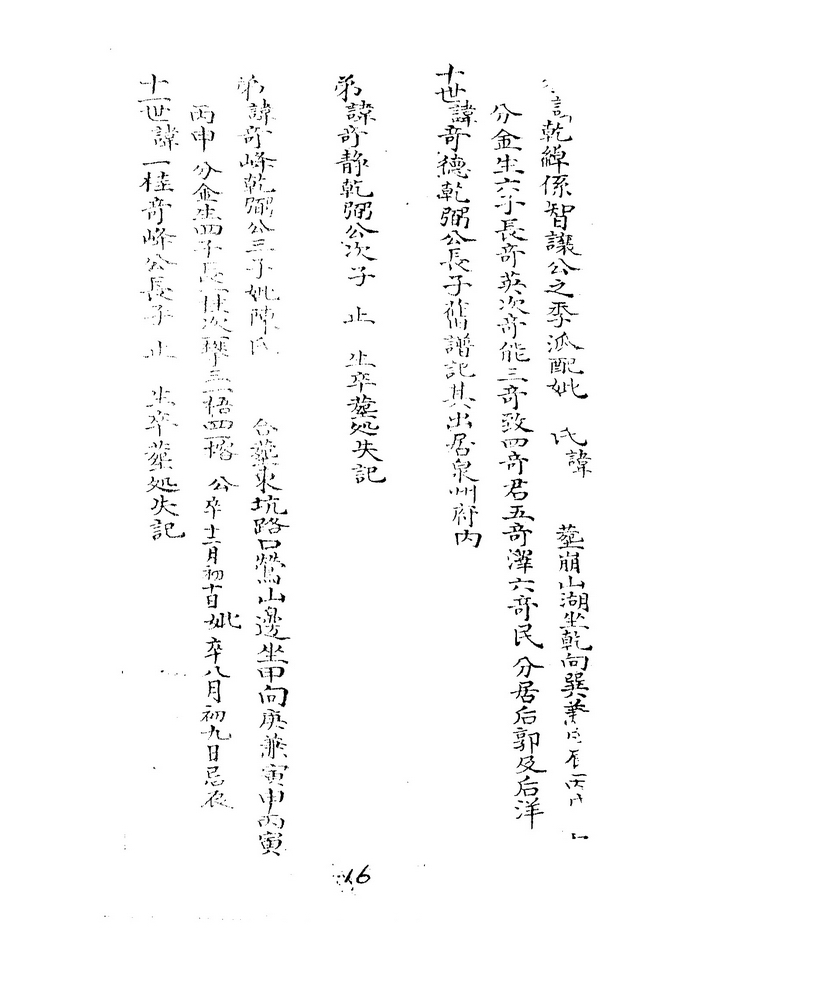 諱乾綽係智讓公之季派配妣 氏諱 塟崩山湖坐乾向巽兼 辰丙
分金生六子長奇英次奇能三奇致四奇君五奇澤六奇民 分居后郭及后洋
十世諱奇德乾弼公長子舊譜記其出居泉州府內
弟諱奇靜乾弼公次子 止 生卒塟処失記
弟諱奇峰乾弼公三子妣陳氏 合塟東坑路口鶯山邊坐甲向庚兼寅申丙寅
丙申分金生四子長一桂次一 三一梧四一榕 公卒十二月初十日妣卒八月初九日忌辰
十一世諱一桂奇峰公長子 止 生卒塟処失記
16